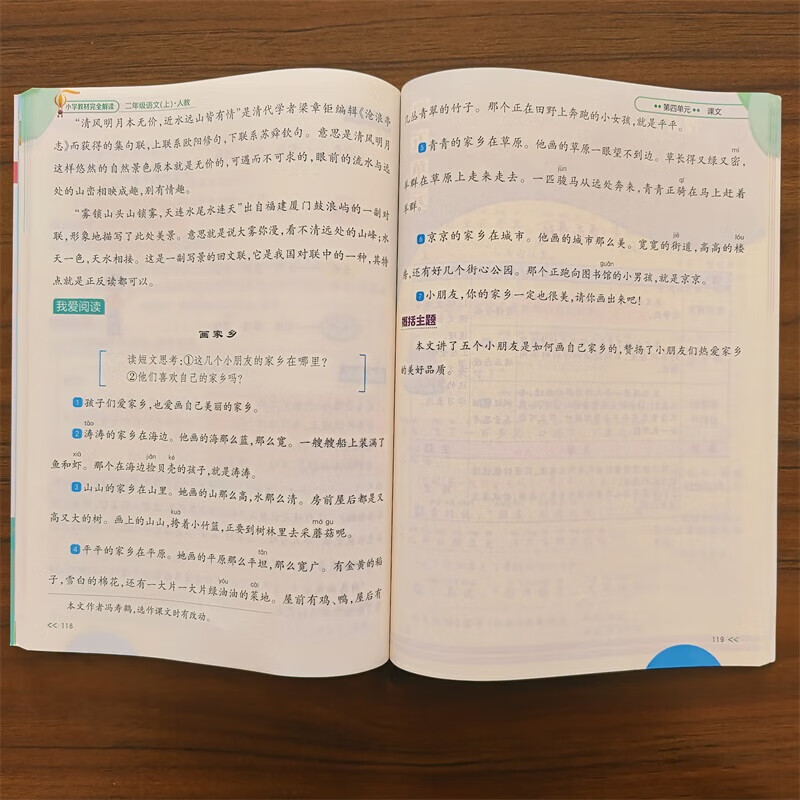 小学教材完全解读 二年级语文(上)·人教
“清风明月本无价,近水远山皆有情”是清代学者梁章钜编辑《沧浪亭
志》而获得的集句联,上联系欧阳修句,下联系苏舜钦句。意思是清风明月
这样悠然的自然景色原本就是无价的,可遇而不可求的,眼前的流水与远
处的山峦相映成趣,别有情趣。
“雾锁山头山锁雾,天连水尾水连天”出自福建厦门鼓浪屿的一副对
联,形象地描写了此处美景。意思就是说大雾弥漫,看不清远处的山峰;水
天一色,天水相接。这是一副写景的回文联,它是我国对联中的一种,其特
点就是正反读都可以。
我爱阅读
画家乡
读短文思考:①这几个小朋友的家乡在哪里?
②他们喜欢自己的家乡吗?
1 孩子们爱家乡,也爱画自己美丽的家乡。
tāo
2 涛涛的家乡在海边。他画的海那么蓝,那么宽。一艘艘船上装满了
xiā jiǎn ké
鱼和虾。那个在海边捡贝壳的孩子,就是涛涛。
3 山山的家乡在山里。她画的山那么高,水那么清。房前屋后都是又
kuà mó gu
高又大的树。画上的山山,挎着小竹篮,正要到树林里去采蘑菇呢。
tǎn
4 平平的家乡在平原。她画的平原那么平坦,那么宽广。有金黄的稻
yóu cài
子,雪白的棉花,还有一大片一大片绿油油的菜地。屋前有鸡、鸭,屋后有
本文作者冯寿鹤,选作课文时有改动。
<< 118
第四单元 课文
几丛青翠的竹子。那个正在田野上奔跑的小女孩,就是平平。
mì
5 青青的家乡在草原。他画的草原一眼望不到边。草长得又绿又密,
jùn qí
羊群在草原上走来走去。一匹骏马从远处奔来,青青正骑在马上赶着
羊群。
jiē lóu
6 京京的家乡在城市。他画的城市那么美。宽宽的街道,高高的楼
guǎn
房,还有好几个街心公园。那个正跑向图书馆的小男孩,就是京京。
7 小朋友,你的家乡一定也很美,请你画出来吧!
概括主题
本文讲了五个小朋友是如何画自己家乡的,赞扬了小朋友们热爱家乡
的美好品质。
119 <<